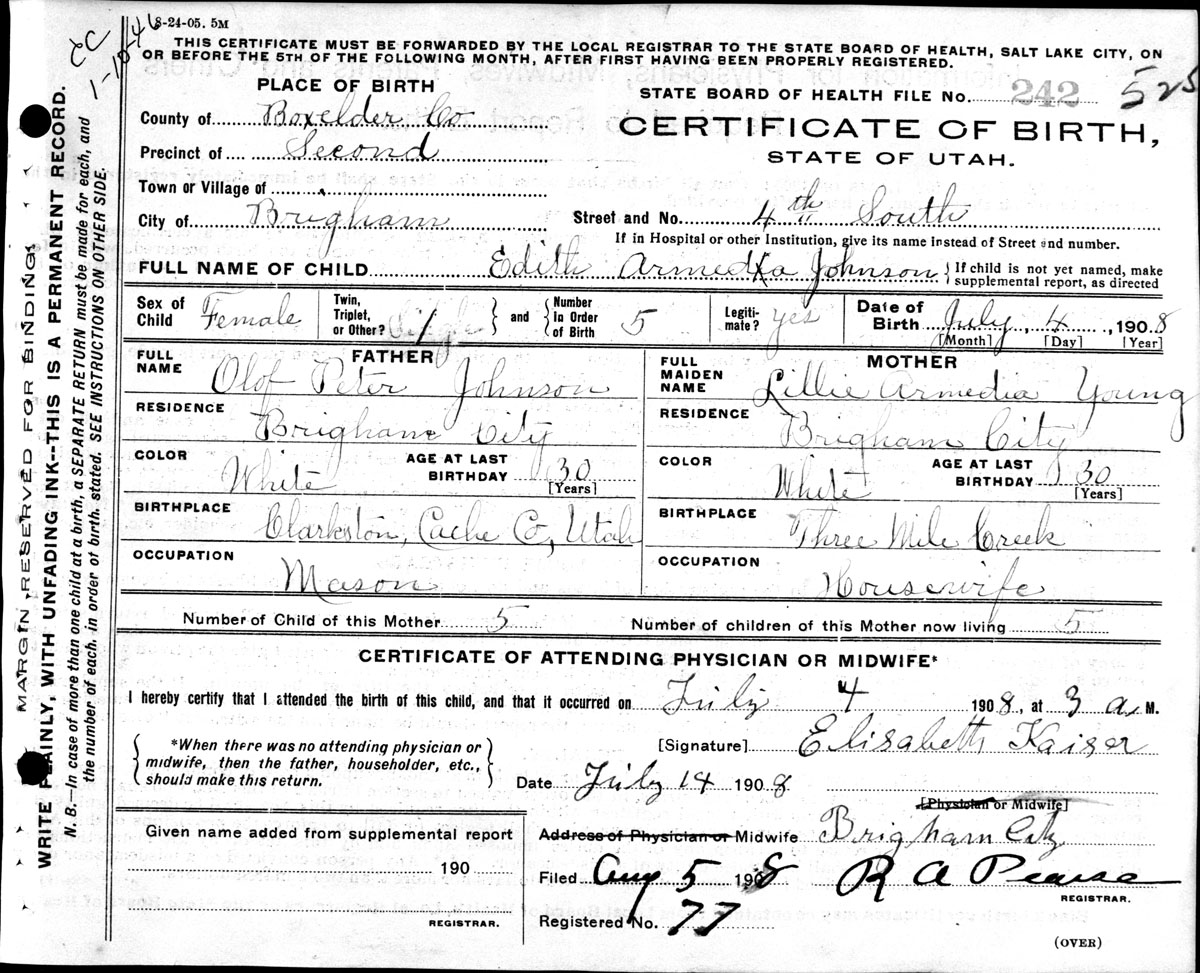 8-24-05. 5M
THIS CERTIFICATE MUST BE FORWARDED BY THE LOCAL REGISTRAR TO THE STATE BOARD OF HEALTH, SALT LAKE CITY, ON
OR BEFORE THE 5TH OF THE FOLLOWING MONTH, AFTER FIRST HAVING BEEN PROPERLY REGISTERED.
1-10-46
MARGIN RESERVED FOR BINDING.
WRITE PLAINLY, WITH UNFADING INK--THIS IS A PERMANENT RECORD.
N. B.—In case of more than one child at a birth, a SEPARATE RETURN must be made for each, and
the number of each, in order of birth, stated. SEE INSTRUCTIONS ON OTHER SIDE.
PLACE OF BIRTH
County of Boxelder Co
Precinct of Second
Town or Village of
City of Brigham
STATE BOARD OF HEALTH FILE No. 242 525
CERTIFICATE OF BIRTH,
STATE OF UTAH.
Street and No. 4th South
If in Hospital or other Institution, give its name instead of Street and number.
FULL NAME OF CHILD Edith Armedia Johnson { If child is not yet named, make
supplemental report, as directed
Sex of Child Female
Twin, Triplet, or Other? 1 and Number In Order of Birth 5
Legitimate? yes
Date of Birth July, 4, 1908
[Month] [Day] [Year]
FATHER
FULL NAME Olof Peter Johnson
RESIDENCE Brigham City
COLOR White AGE AT LAST BIRTHDAY 30
[Years]
BIRTHPLACE Clarkston, Cache Co, Utah
OCCUPATION Mason
MOTHER
FULL MAIDEN NAME Lillie Armedia Young
RESIDENCE Brigham City
COLOR White AGE AT LAST BIRTHDAY 30
[Years]
BIRTHPLACE Three Mile Creek
OCCUPATION Housewife
Number of Child of this Mother 5 Number of children of this Mother now living 5
CERTIFICATE OF ATTENDING PHYSICIAN OR MIDWIFE*
I hereby certify that I attended the birth of this child, and that it occurred on July 4 1908, at 3 a. M.
{ *When there was no attending physician or
midwife, then the father, householder, etc.,
should make this return. }
[Signature] Elisabeth Kaiser
Date July 14 1908
[Physician or Midwife]
Given name added from supplemental report
190
REGISTRAR.
Address of Physician or Midwife Brigham City
Filed Aug 5 1908 R A Pearse
REGISTRAR.
Registered No. 77
(OVER)